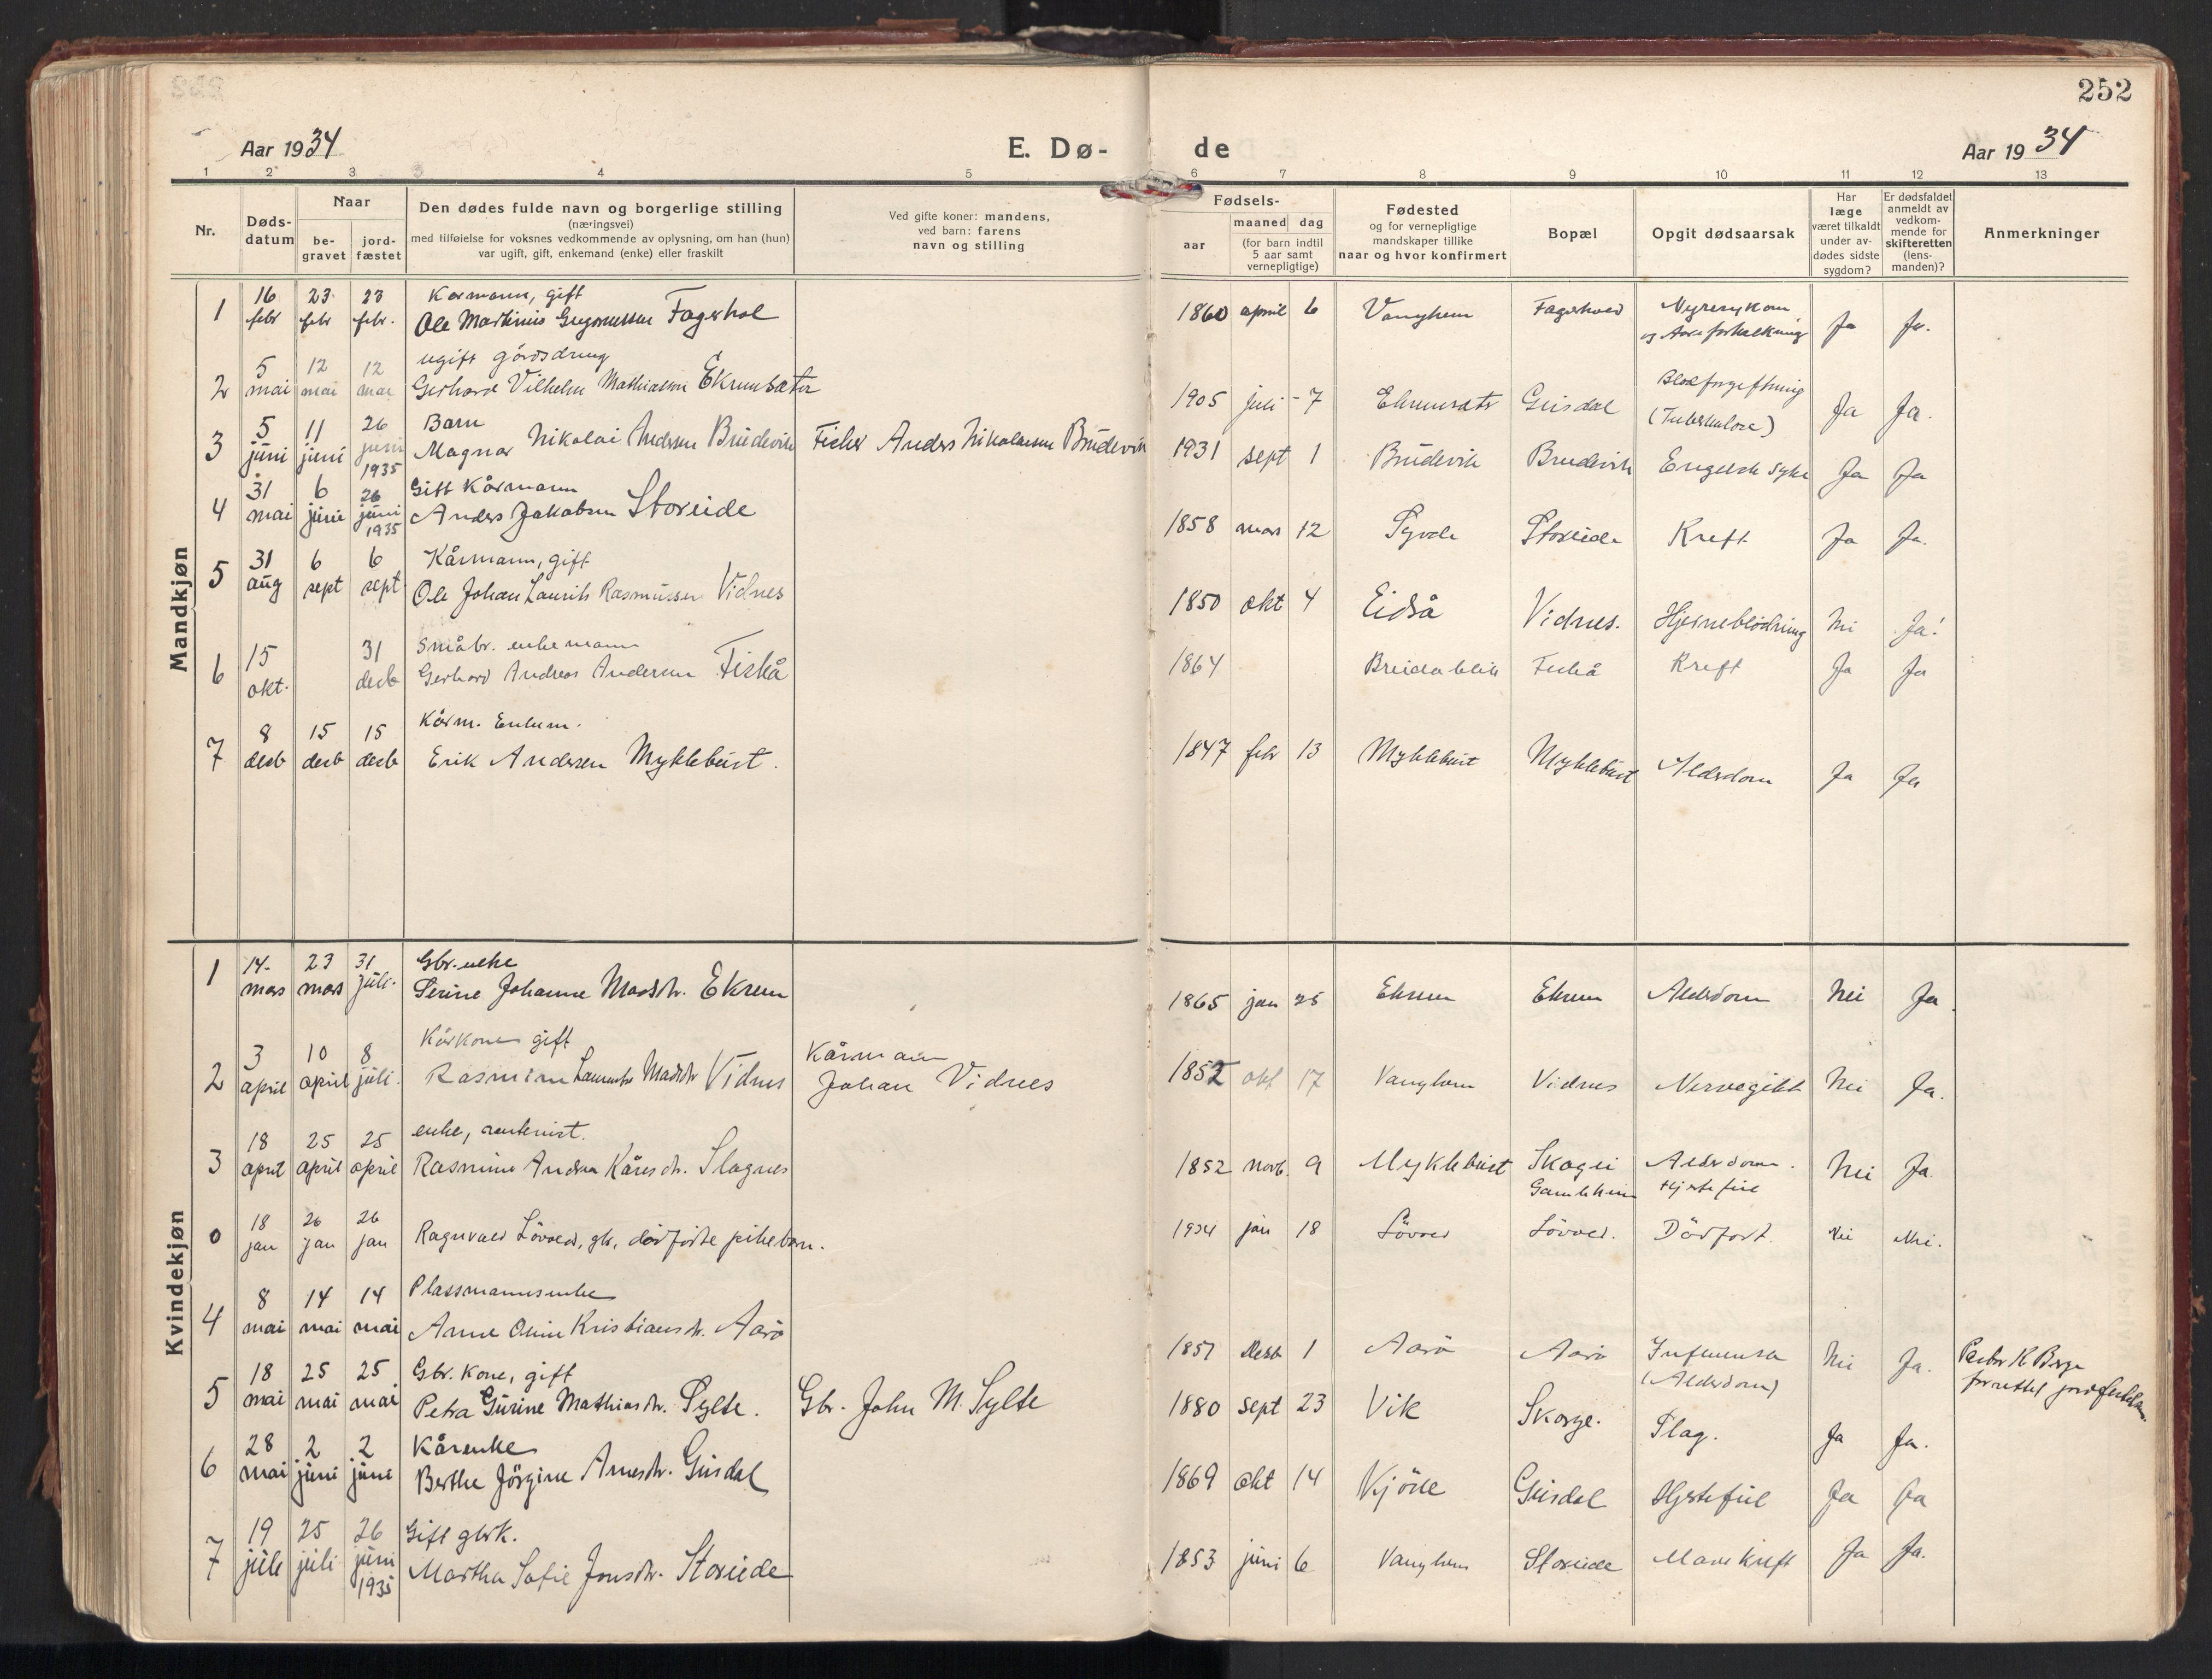 252
Aar 1934
E. Dø-
de
Aar 1934
1 2 3 4 5 6 7 8 9 10 11 12 13
Nr.
Døds-
datum
Naar
be-
gravet
jord-
fæstet
Den dødes fulde navn og borgerlige stilling
(næringsvei)
med tilføielse for voksnes vedkommende av oplysning, om han (hun)
var ugift, gift, enkemand (enke) eller fraskilt
Ved gifte koner: mandens,
ved barn: farens
navn og stilling
Fødsels-
aar
maaned dag
(for barn indtil
5 aar samt
vernepligtige)
Fødested
og for vernepligtige
mandskaper tillike
naar og hvor konfirmert
Bopæl
Opgit dødsaarsak
Har
læge
været tilkaldt
under av-
dødes sidste
sygdom?
Er dødsfaldet
anmeldt av
vedkom-
mende for
skifteretten
(lens-
manden)?
Anmerkninger
Mandkjøn
16 23 23 Kårmann, gift
1 febr febr febr. Ole Martinus Fagerhol 1860 april 6 Fagerhol og Ja Ja.
5 12 12 ugift gårdsdreng
2 mai mai mai Gerhard Vilhelm Mathiassen Ekremsæter 1905 juli 7 Ekremsætr Gusdal Blodforgiftning Ja Ja.
(Tuberkulose)
5 11 26 Barn
3 juni juni juni Magnar Nikolai Andersen Brudevik Fisker Anders Nikolaisen Brudevik 1931 sept 1 Brudevik Brudevik Engelsk syke Ja Ja
1935
31 6 26 Gift Kårmann
4 mai juni juni Anders Jakobsen Storeide 1858 mars 12 Syvde Storeide Kreft Ja Ja.
1935
31 6 6 Kårmann, gift
5 aug sept sept Ole Johan Laurits Rasmussen Vidnes 1850 okt 4 Eidså Vidnes. Hjerneblødning Nei Ja!
15 31 Småbr. enkemann
6 okt. desb Gerhard Andreas Andersen Fiskå 1864 Breidablik Fiskå Kreft Ja Ja
8 15 15 Kårm. Enkem.
7 desb desb desb Erik Andersen Myklebust. 1847 febr 13 Myklebust Myklebust Alderdom Ja Ja
Kvindekjøn
14 23 31 Gbr. enke
1 mars mars juli. Serine Johanne Madsdtr. Ekrem 1865 jan 25 Ekrem Ekrem Alderdom Nei Ja.
3 10 8 Kårkone, gift Kårmann
2 april april juli. Madsdtr Vidnes Johan Vidnes 1852 okt 17 Vidnes Nervegikt Nei Ja.
18 25 25 enke,
3 april april april Rasmine Slagnes 1852 novb. 9 Myklebust Skogei Alderdom. Nei Ja
Gamleheim Hjertefeil
18 26 26
0 jan jan jan Ragnvald Løvoed, gbr, dødfødte pikebarn. 1934 jan 18 Løvoed Løvoed. Dødfødt. Nei Nei.
8 14 14 Plassmannsenke
4 mai mai mai Anne Kristiansdtr. Aarø 1851 desb 1 Aarø Aarø Influensa Nei Ja.
(Alderdom)
18 25 25 Gbr. kone, gift
5 mai mai mai Petra Gurine Mathiasdtr. Sylte. Gbr. John M. Sylte 1880 sept 23 Vik Skorge. Slag. Ja Ja.
28 2 2 Kårenke
6 mai juni juni Berthe Jørgine Arnesdtr. Gusdal 1869 okt 14 Kjøde Gusdal Hjertefeil Ja Ja
19 25 26 Gift gbrk.
7 juli juli juni Martha Sofie Jonsdtr. Storeide 1853 juni 6 Storeide Mavekreft Ja Ja.
1935